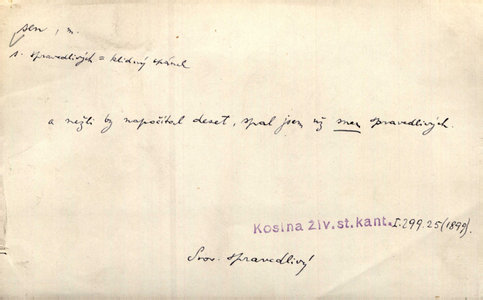 sen, m.
s. spravedlivých = klidný spánek
a nežli by napočítal deset, spal jsem už snem spravedlivých.
Kosina živ.st.kant. I.299.25 (1899).
Srov. spravedlivý